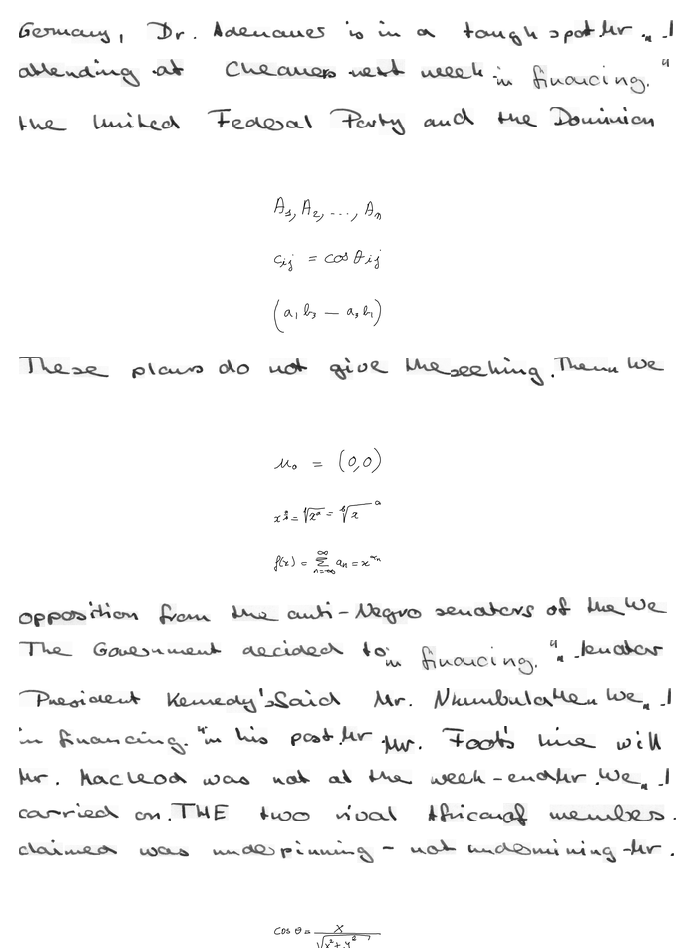 Germany, Dr. Adenauer is in a tough spot Mr. „ I
attending at Chequers next week in financing. "
the United Federal Party and the Dominion
A₁, A₂, ..., Aₙ
cᵢⱼ = cos θᵢⱼ
(a₁b₃ — a₃b₁)
These plans do not give the seeking. Then We
μ₀ = (0,0)
f(x) = ∑_{n=-∞}^{∞} aₙ = x^{αₙ}
opposition from the anti-Negro senators of the We
The Government decided to in financing. " „ Senator
President Kennedy's Said Mr. Nkumbula Then We „ I
in financing. "in his post. Mr Mr. Foot's line will
Mr. Macleod was not at the week-end Mr. We „ I
carried on. THE two rival African of members.
claimed was underpinning - not undermining - Mr.
cos θ = x/√(x²+y²)